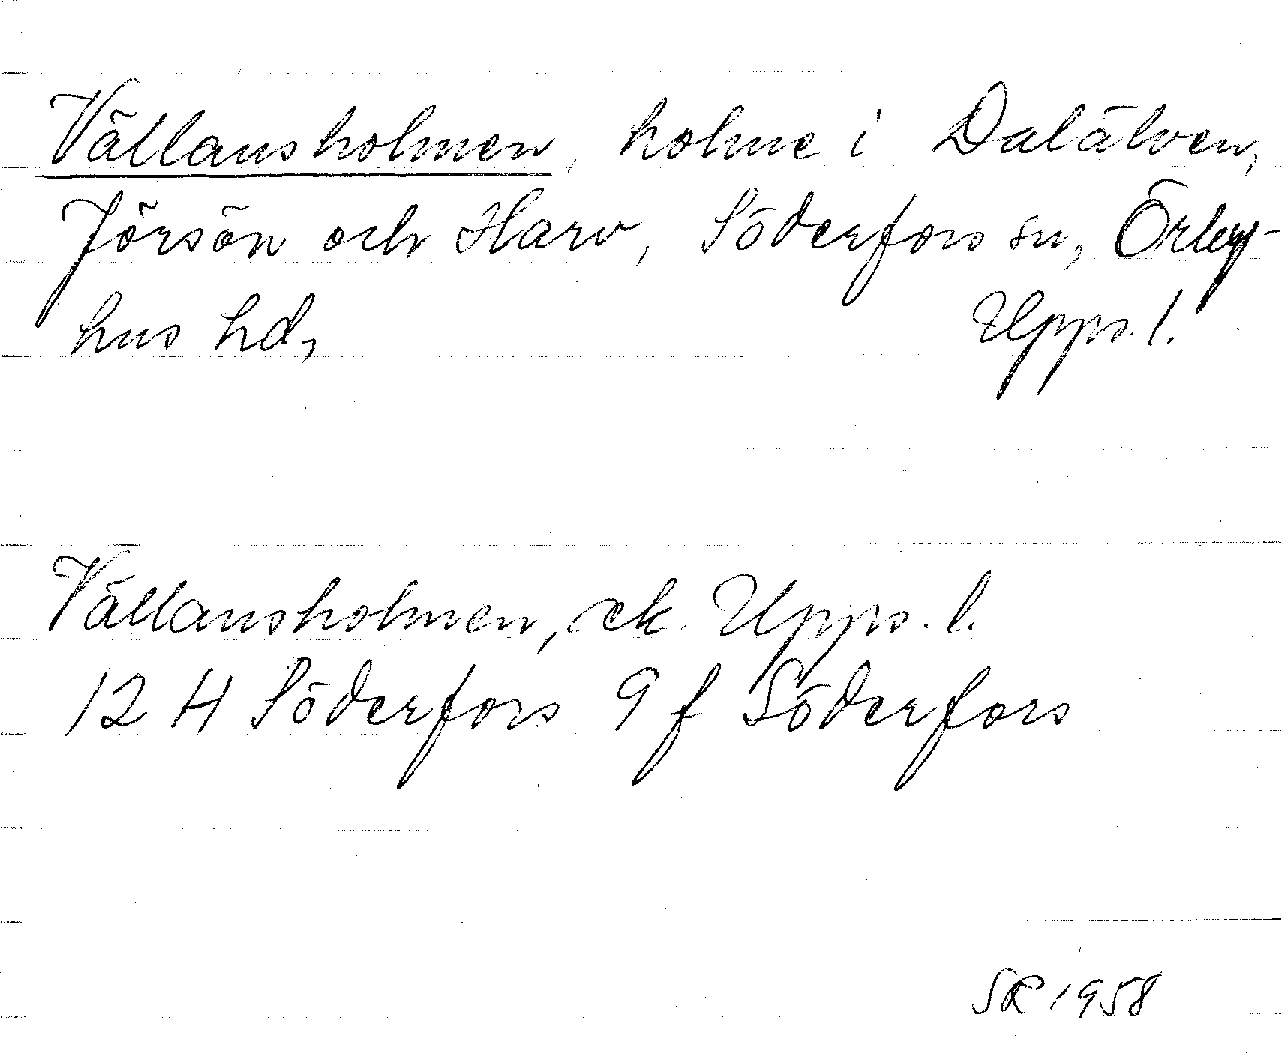 Vällansholmen, holme i Dalälven,
Jörsön och Harv, Söderfors sn, Örby-
hus hd, Upps. l.
Vällansholmen, ek. Upps. l.
12 H Söderfors 9 f Söderfors
SR 1958